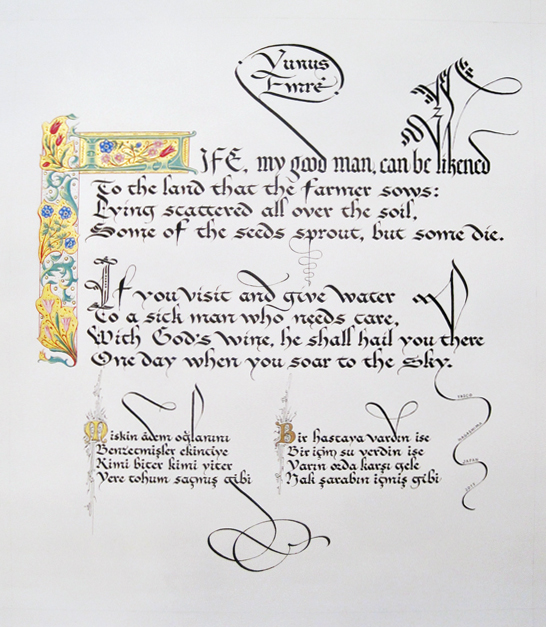 Yunus
Emre
LIFE, my good man, can be likened
To the land that the farmer sows:
Lying scattered all over the soil,
Some of the seeds sprout, but some die.
If you visit and give water
To a sick man who needs care,
With God's wine, he shall hail you there
One day when you soar to the Sky.
Miskin âdem oğlanını
Benzetmişler ekinciye
Kimi biter kimi yiter
Yere tohum saçmış gibi
Bir hastaya vardın ise
Bir içim su verdin ise
Yarın orda karşı gele
Hak şarabın içmiş gibi